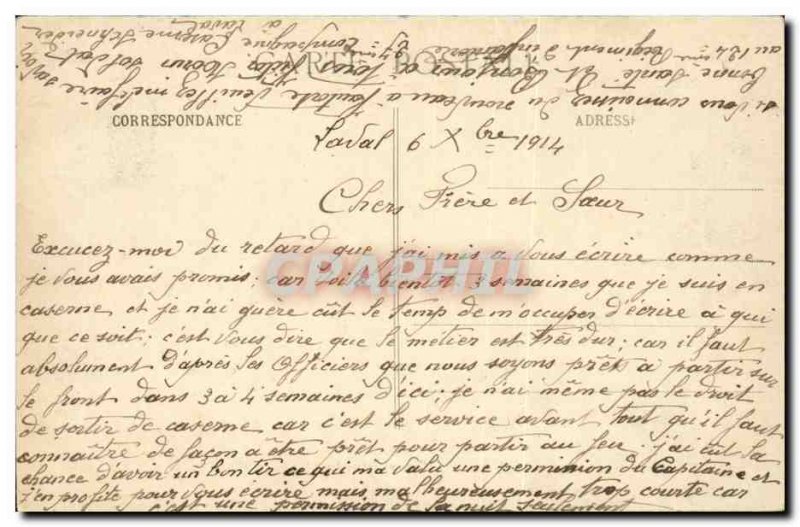 CARTE POSTALE
CORRESPONDANCE
ADRESSE
Laval 6 Xbre 1914
Chers Frère et Sœur
Excucez-moi du retard que j'ai mis a vous écrire comme
je vous avais promis; car voilà bientôt 3 semaines que je suis en
caserne et je n'ai guère eût le temp de m'occuper d'écrire à qui
que ce soit; c'est vous dire que le métier est très dur; car il faut
absolument d'après les Officiers que nous soyons prêt à partir sur
le front dans 3 à 4 semaines d'ici; je n'ai même pas le droit
de sortir de caserne car c'est le service avant tout qu'il faut
connaître de façon a être prêt pour partir au feu; j'ai eut la
chance d'avoir un bon tir ce qui ma valu une permission du Capitaine et
j'en profite pour vous écrire mais malheureusement trop courte car
c'est une permission de la nuit seulement
si vous connaissez du nouveau a Veuillez me faire savoir
Bonne Santé et Bonjour a tous soldat
au 124ème Régiment d'infanterie
27ème Compagnie Caserne Schneider
à Laval
CPAPHIL